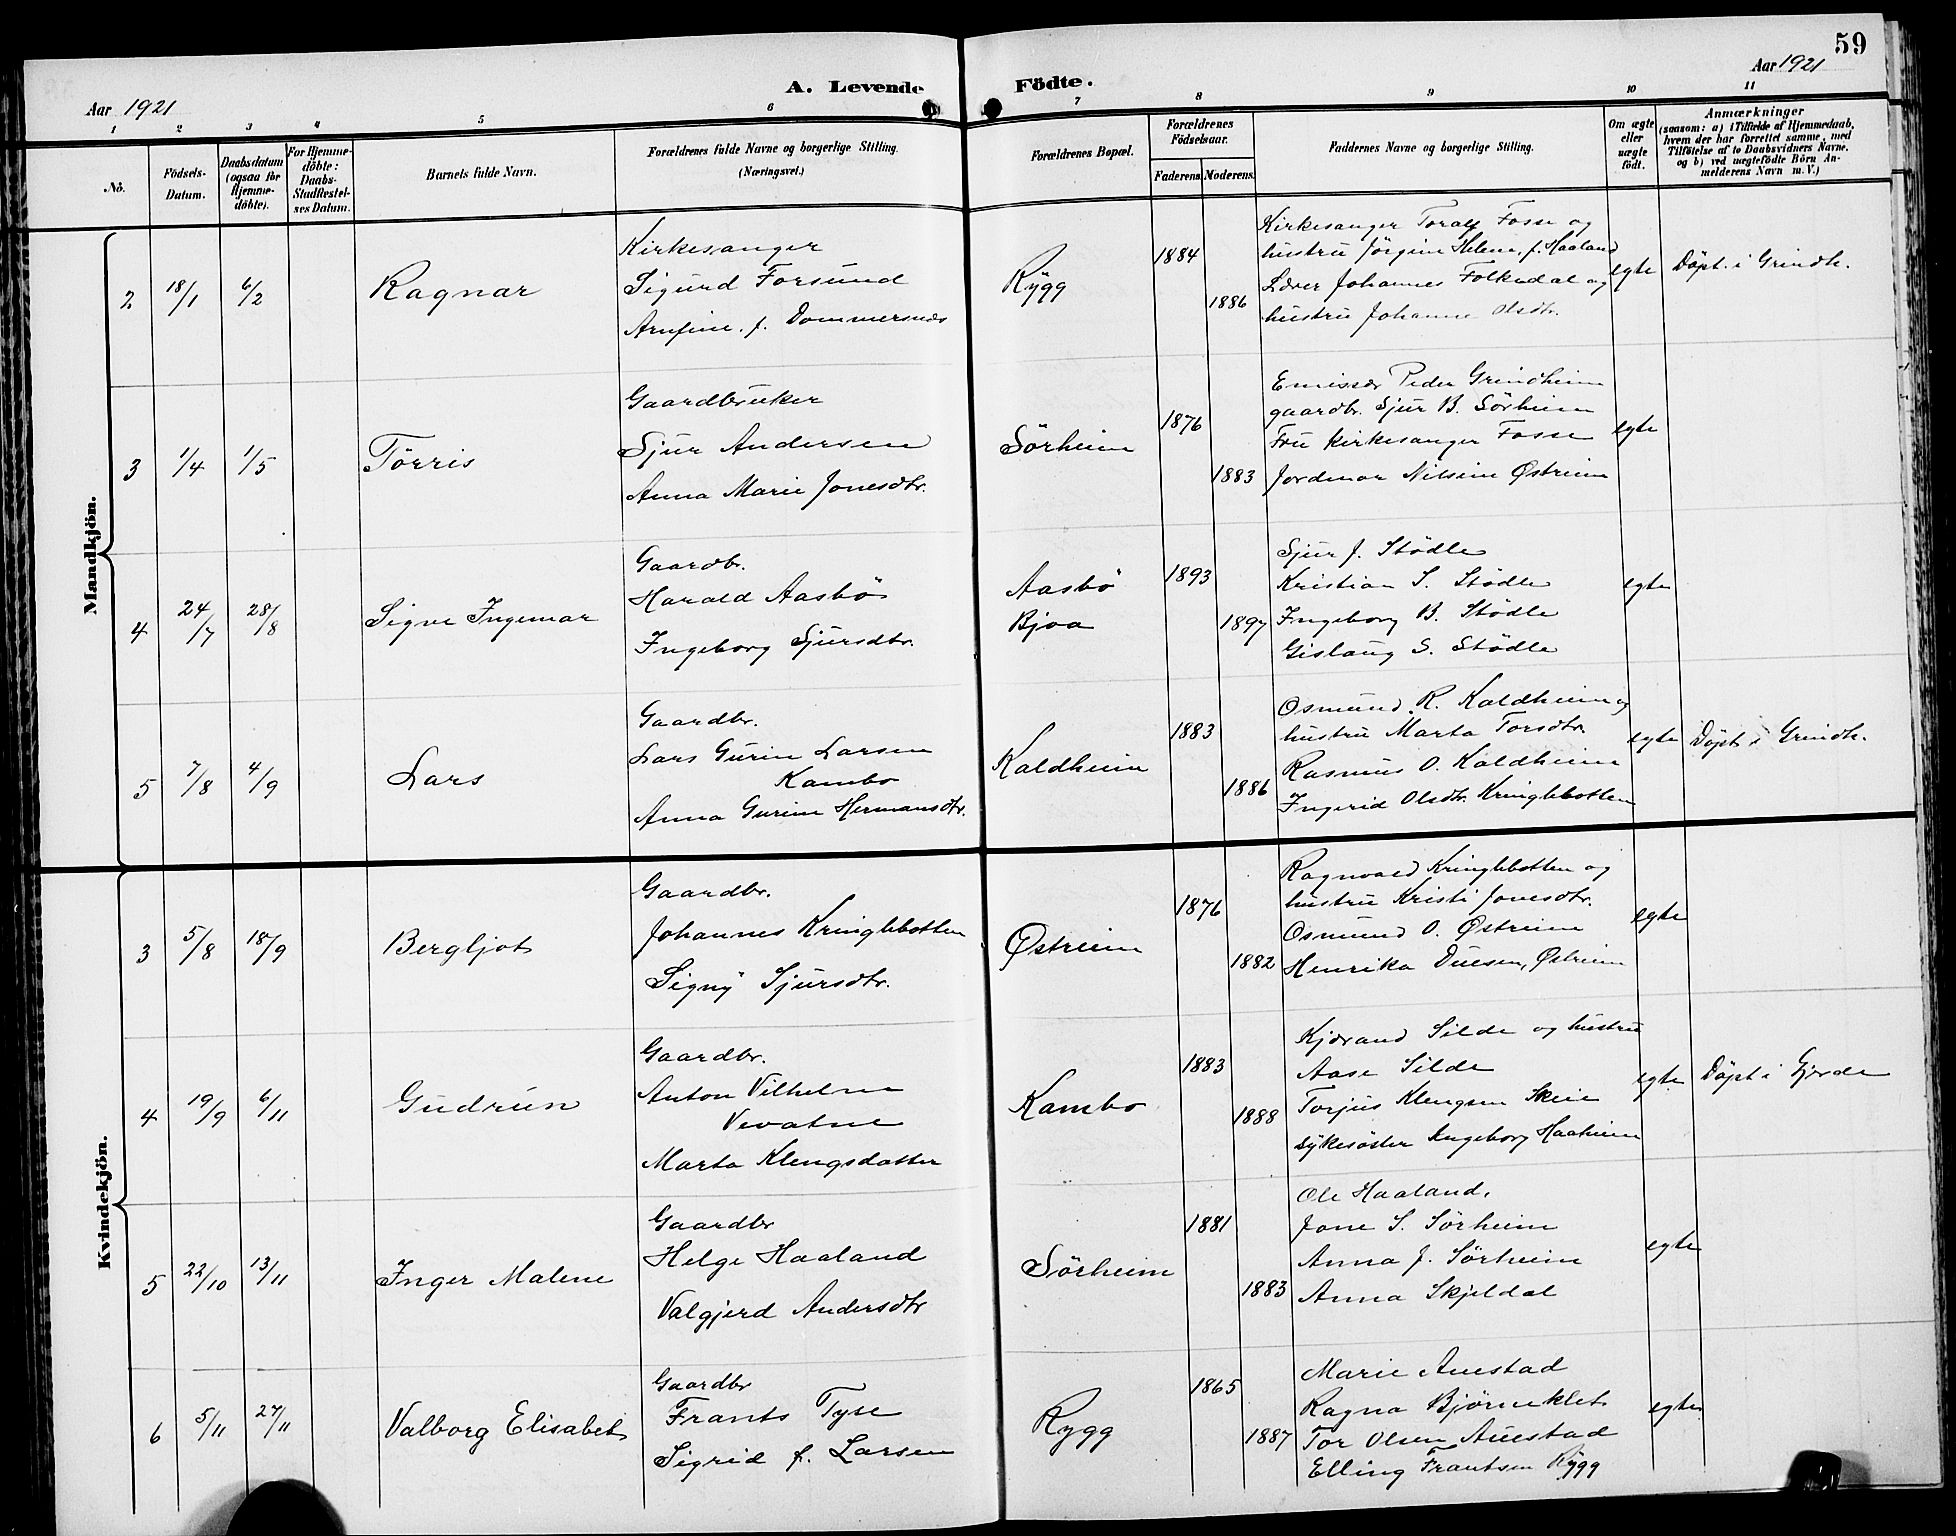 59
Aar 1921
A. Levende Födte.
Aar 1921
1 2 3 4 5 6 7 8 9 10 11
No.
Födsels-Datum.
Daabsdatum (ogsaa for Hjemmedöbte).
For Hjemmedöbte: Daabs-Stadfæstelses Datum.
Barnets fulde Navn.
Forældrenes fulde Navne og borgerlige Stilling.
(Næringsvei.)
Forældrenes Bopæl.
Forældrenes Födselsaar.
Faderens. Moderens.
Faddernes Navne og borgerlige Stilling.
Om ægte eller uægte födt.
Anmærkninger
(saasom: a) i Tilfælde af Hjemmedaab,
hvem der har forrettet samme, med
Tilföielse af to Daabsvidners Navne,
og b) ved uægtefödte Börn An-
melderens Navn m. V.)
Mandkjön.
2 18/1 6/2 Ragnar
Kirkesanger
Sigurd Forsund
Arnfine f. Dommersnes
Rygg
1884
1886
Kirkesanger Toralf Fosse og
hustru Jörgine Helene f. Haaland
Lærer Johannes Folkedal og
hustru Johanne Olsdtr.
egte
Döpt i Grindh.
3 1/4 1/5 Törris
Gaardbruker
Sjur Andersen
Anna Marie Jonesdtr.
Sörheim
1876
1883
Emissær Peder Grindheim
gaardbr. Sjur B. Sörheim
Fru kirkesanger Fosse
Jordmor Nilsine Østreim
egte
4 24/7 28/8 Sigve Ingemar
Gaardbr.
Harald Aasbö
Ingeborg Sjursdtr.
Aasbö
Bjoa
1893
1897
Sjur J. Stödle
Kristian S. Stödle
Ingeborg B. Stödle
Gislaug S. Stödle
egte
5 7/8 4/9 Lars
Gaardbr.
Lars Gurin Larsen
Kambo
Anna Gurine Hermansdtr.
Kaldheim
1883
1886
Osmund R. Kaldheim og
hustru Marta Torsdtr.
Rasmus O. Kaldheim
Ingerid Olsdtr. Kringlebotten
egte
Döpt i Grindh.
Kvindekjön.
3 5/8 18/9 Bergljot
Gaardbr.
Johannes Kringlebotten
Signy Sjursdtr.
Østreim
1876
1882
Ragnvald Kringlebotten og
hustru Kristi Jonesdtr.
Osmund O. Østreim
Henrika Duesen, Østreim
egte
4 19/9 6/11 Gudrun
Gaardbr.
Anton Vilhelm
Vevatne
Marta Klengsdatter
Kambo
1883
1888
Kjærand Silde og hustru
Aase Silde
Torjus Klengsen Skeie
sykesöster Ingeborg Haaheim
egte
Döpt i Gjerde
5 22/10 13/11 Inger Malene
Gaardbr
Helge Haaland
Valgjerd Andersdtr
Sörheim
1881
1883
Ole Haaland,
Jone S. Sørheim
Anna J. Sørheim
Anna Skjeldal
egte
6 5/11 27/11 Valborg Elisabet
Gaardbr
Frants Tyse
Sigrid f. Larsen
Rygg
1865
1887
Marie Auestad
Ragna Bjørneklet
Tor Olsen Auestad
Elling Frantsen Rygg
egte